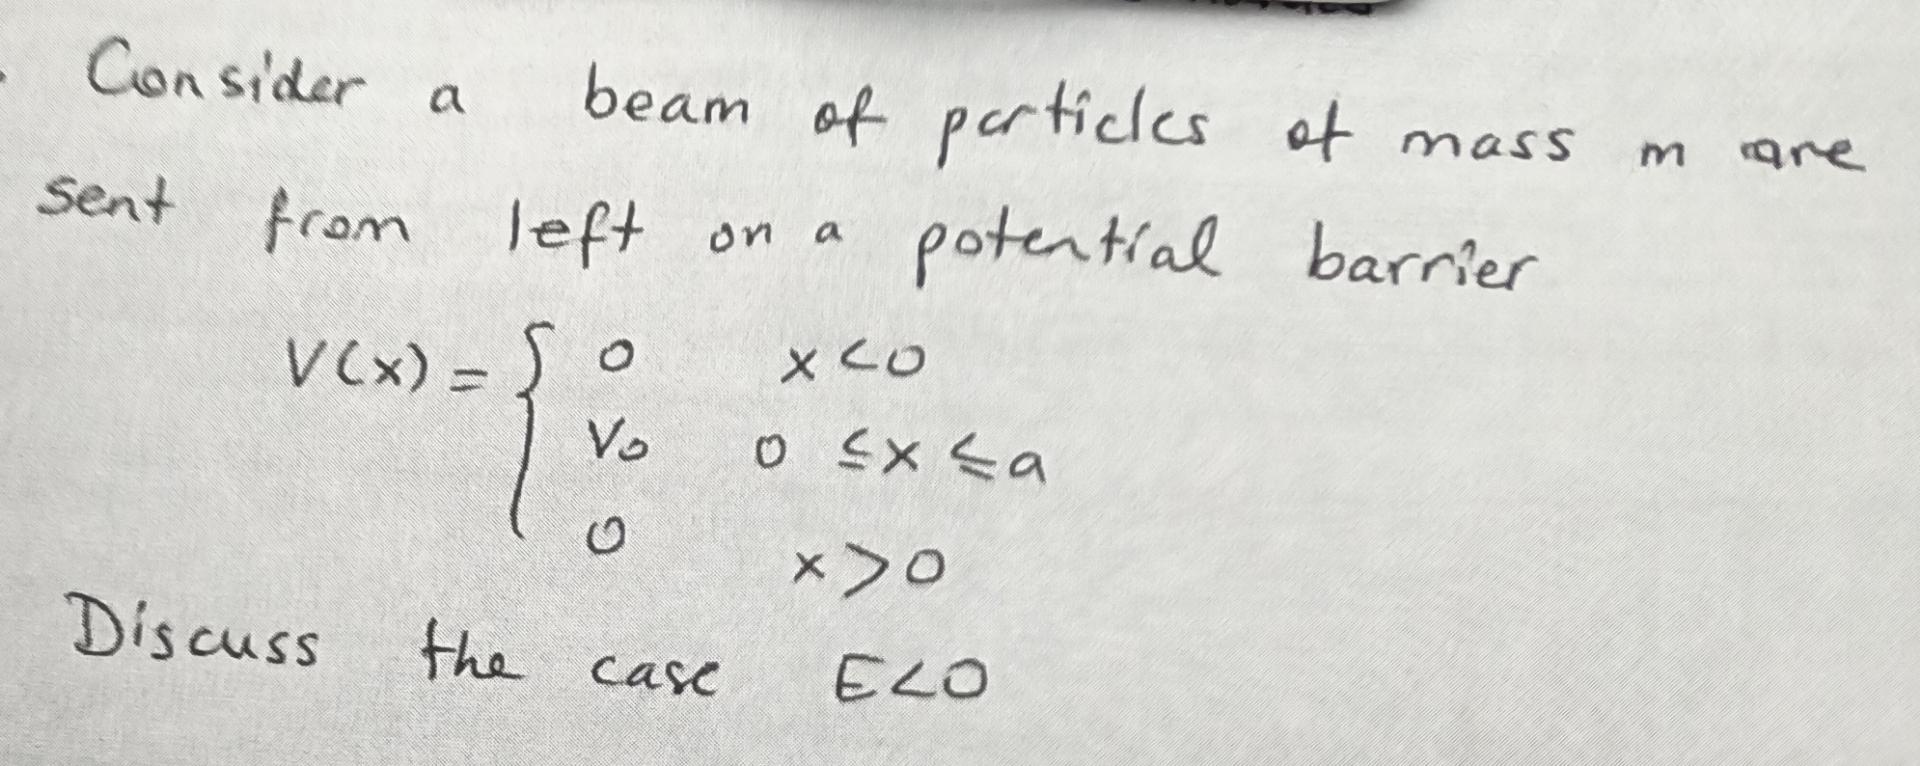 Consider a beam of particles of mass m are
sent from left on a potential barrier
V(x) = { 0 x<0
V0 0 ≤x ≤a
0 x>0
Discuss the case E<0